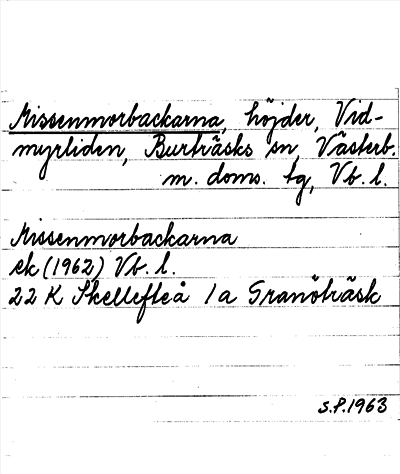 Missenmorbackarna, höjder, Vid-
myrliden, Burträsks sn, Västerb.
m. doms. tg, Vb. l.
Missenmorbackarna
ek (1962) Vb. l.
22 K Skellefteå 1a Granöträsk
S.P. 1963